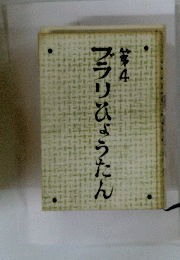 第4
ブラリひょうたん